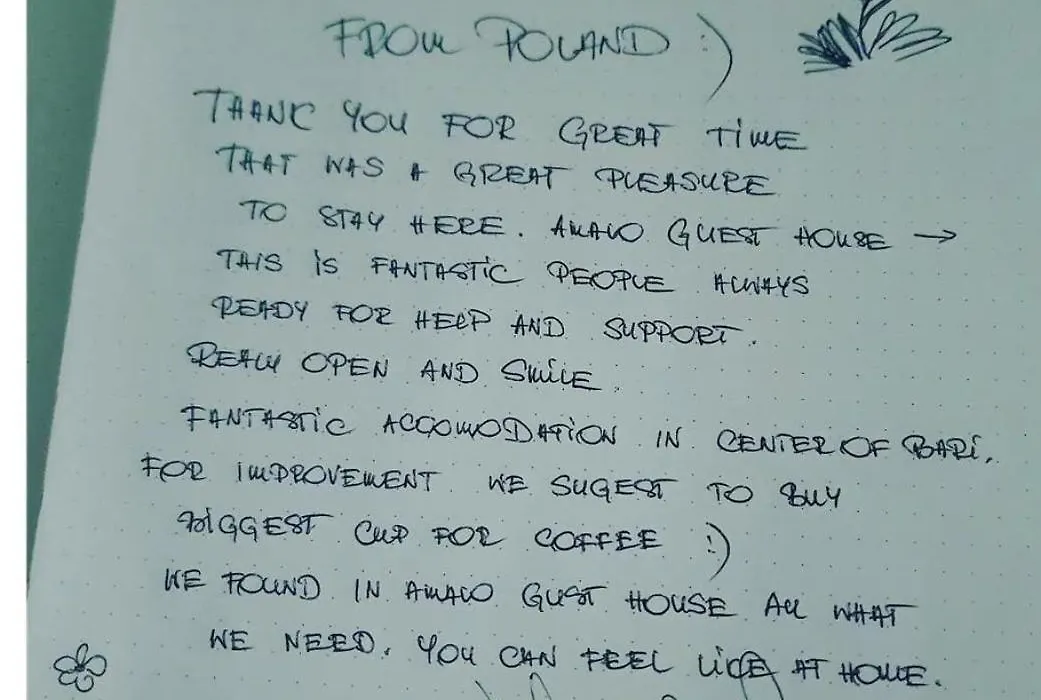 FROM POLAND :)
THANK YOU FOR GREAT TIME
THAT WAS A GREAT PLEASURE
TO STAY HERE. AMALO GUEST HOUSE →
THIS IS FANTASTIC PEOPLE ALWAYS
READY FOR HELP AND SUPPORT.
REALLY OPEN AND SMILE.
FANTASTIC ACCOMODATION IN CENTER OF BARI.
FOR IMPROVEMENT WE SUGEST TO BUY
BIGGEST CUP FOR COFFEE :)
WE FOUND IN AMALO GUST HOUSE ALL WHAT
WE NEED. YOU CAN FEEL LIKE AT HOME.